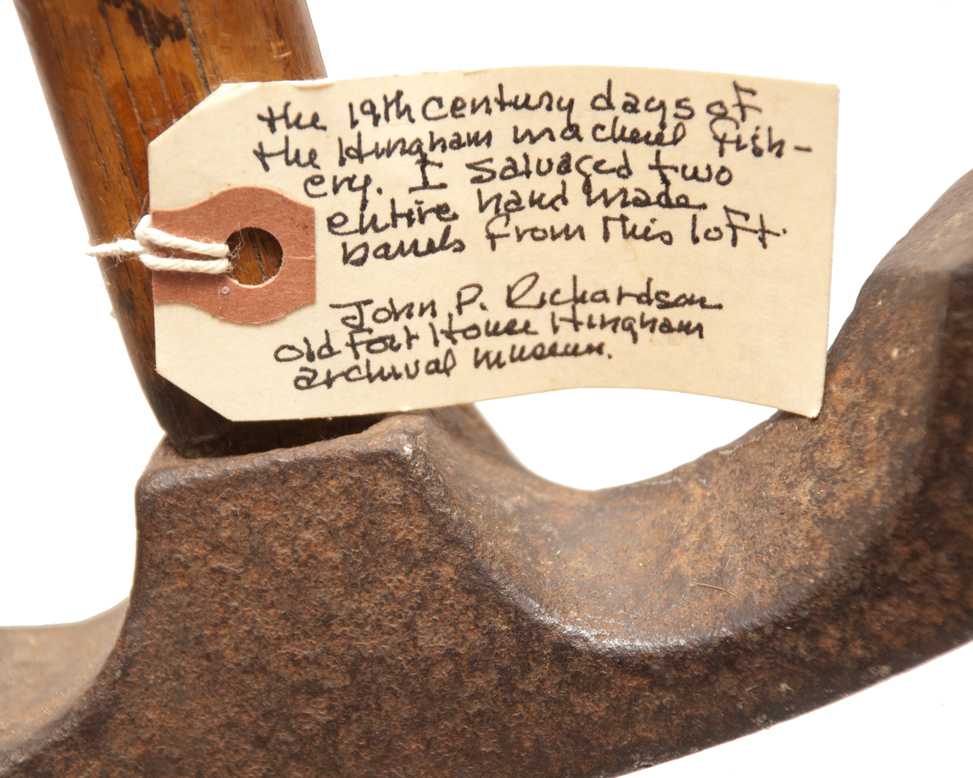 the 19th century days of
the Hingham mackerel fish-
ery. I salvaged two
entire hand made
barrels from this loft.
John P. Richardson
Old Fort House Hingham
archival museum.